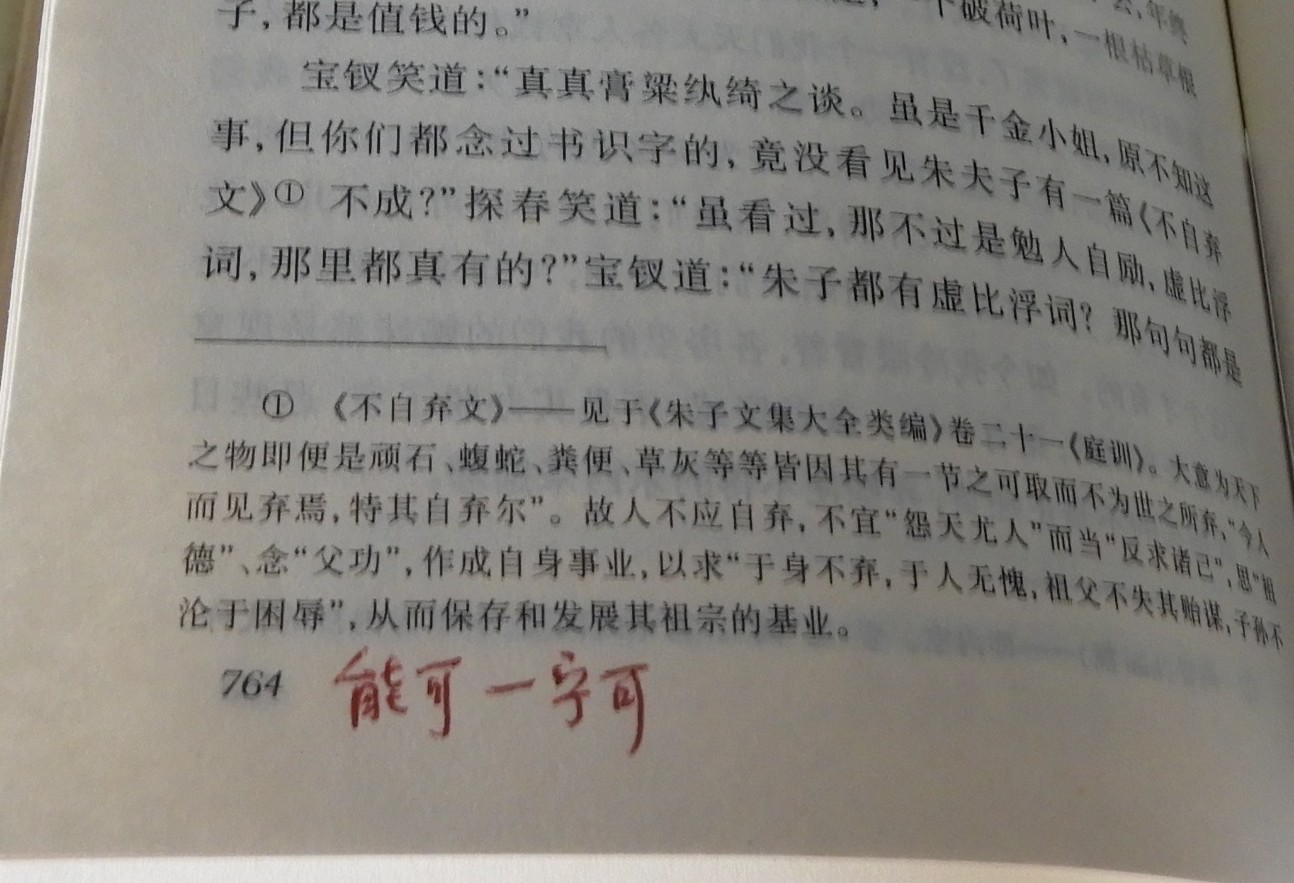 子,都是值钱的。” 个破荷叶,一根枯草根
宝钗笑道:“真真膏粱纨绮之谈。虽是千金小姐,原不知这
事,但你们都念过书识字的,竟没看见朱夫子有一篇《不自弃
文》① 不成?”探春笑道:“虽看过,那不过是勉人自励,虚比浮
词,那里都真有的?”宝钗道:“朱子都有虚比浮词? 那句句都是
① 《不自弃文》——见于《朱子文集大全类编》卷二十一《庭训》。大意为天下
之物即便是顽石、蝮蛇、粪便、草灰等等皆因其有一节之可取而不为世之所弃,“今人
而见弃焉,特其自弃尔”。故人不应自弃,不宜“怨天尤人”而当“反求诸己”,思“祖
德”、念“父功”,作成自身事业,以求“于身不弃,于人无愧,祖父不失其贻谋,子孙不
沦于困辱”,从而保存和发展其祖宗的基业。
764 能可一宁可